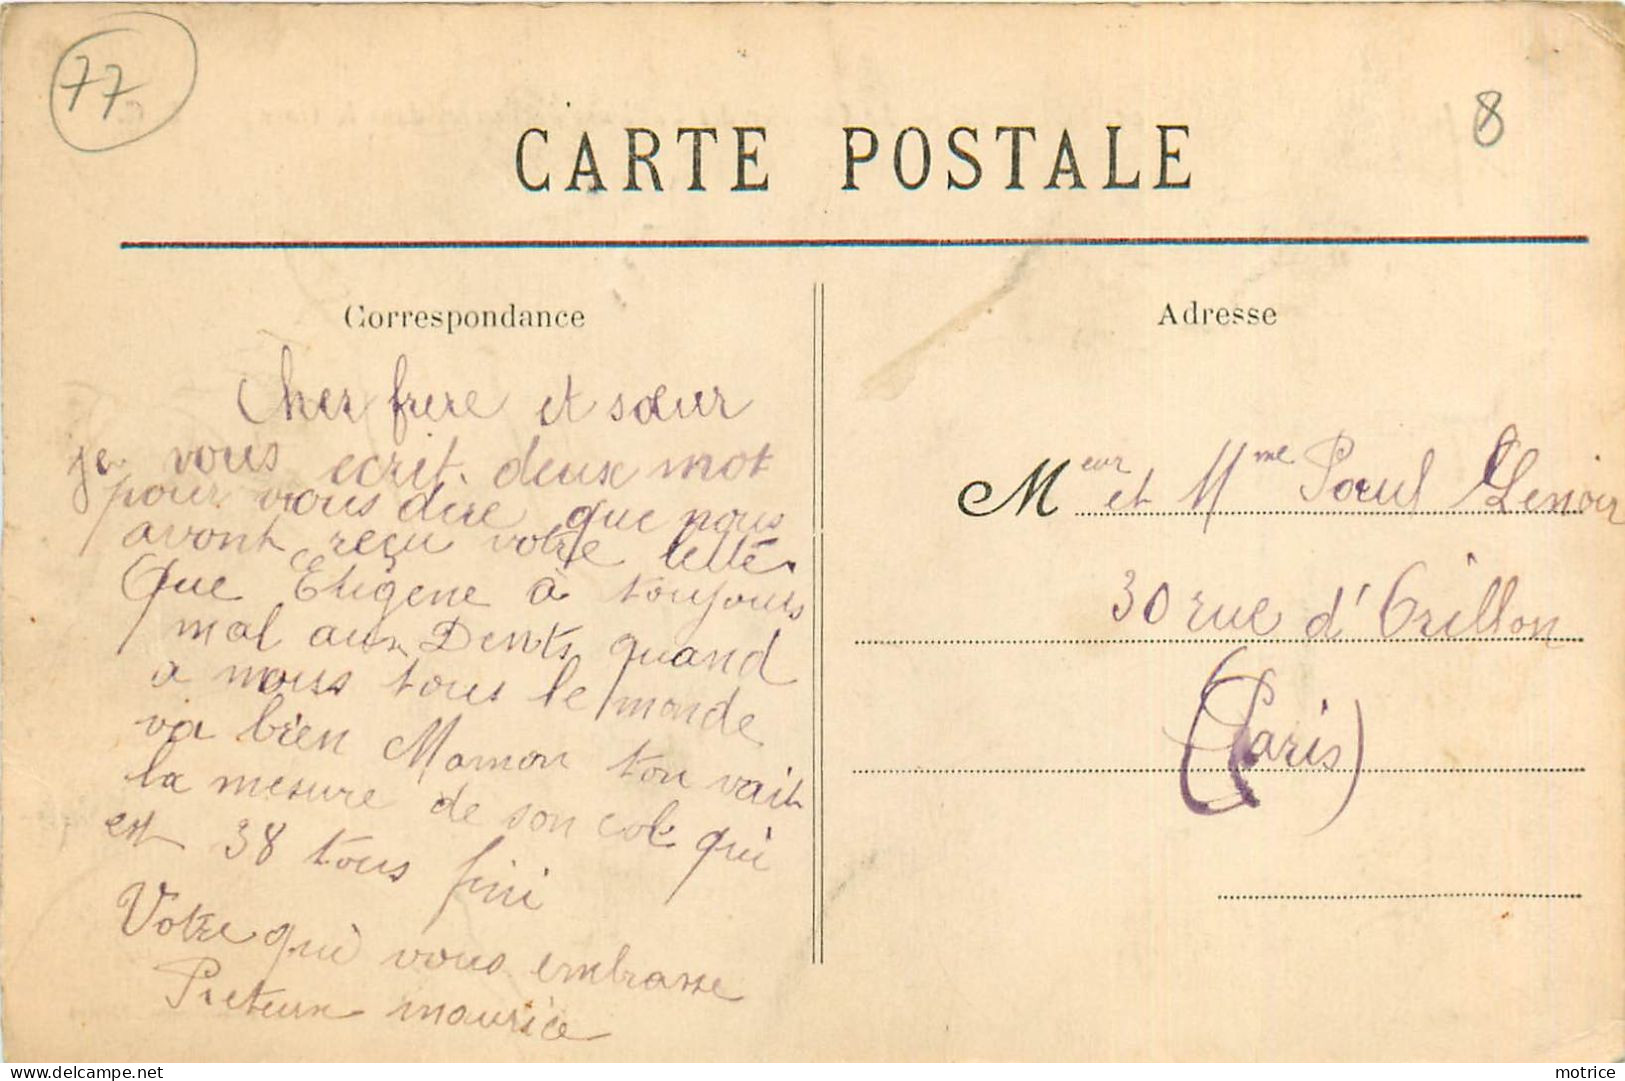 77
8
CARTE POSTALE
Correspondance
Adresse
Cher frere et sœur
je vous ecrit deux mot
pour vous dire que nous
avont reçu votre
Que Eugene à toujours
mal aux Dents quand
a nous tous le monde
va bien Maman ton vait
la mesure de son col qui
est 38 tous fini
Votre qui vous embrasse
maurice
Meur et Mme Paul Lenoir
30 rue d'Orillon
(Paris)
motrice